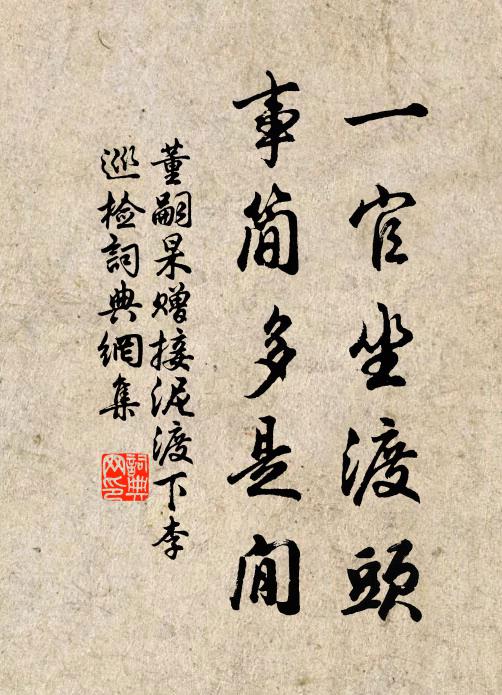 一官坐渡頭
事簡多是閒
董嗣杲贈接泥渡下李
巡檢詞典網集
詞典網印